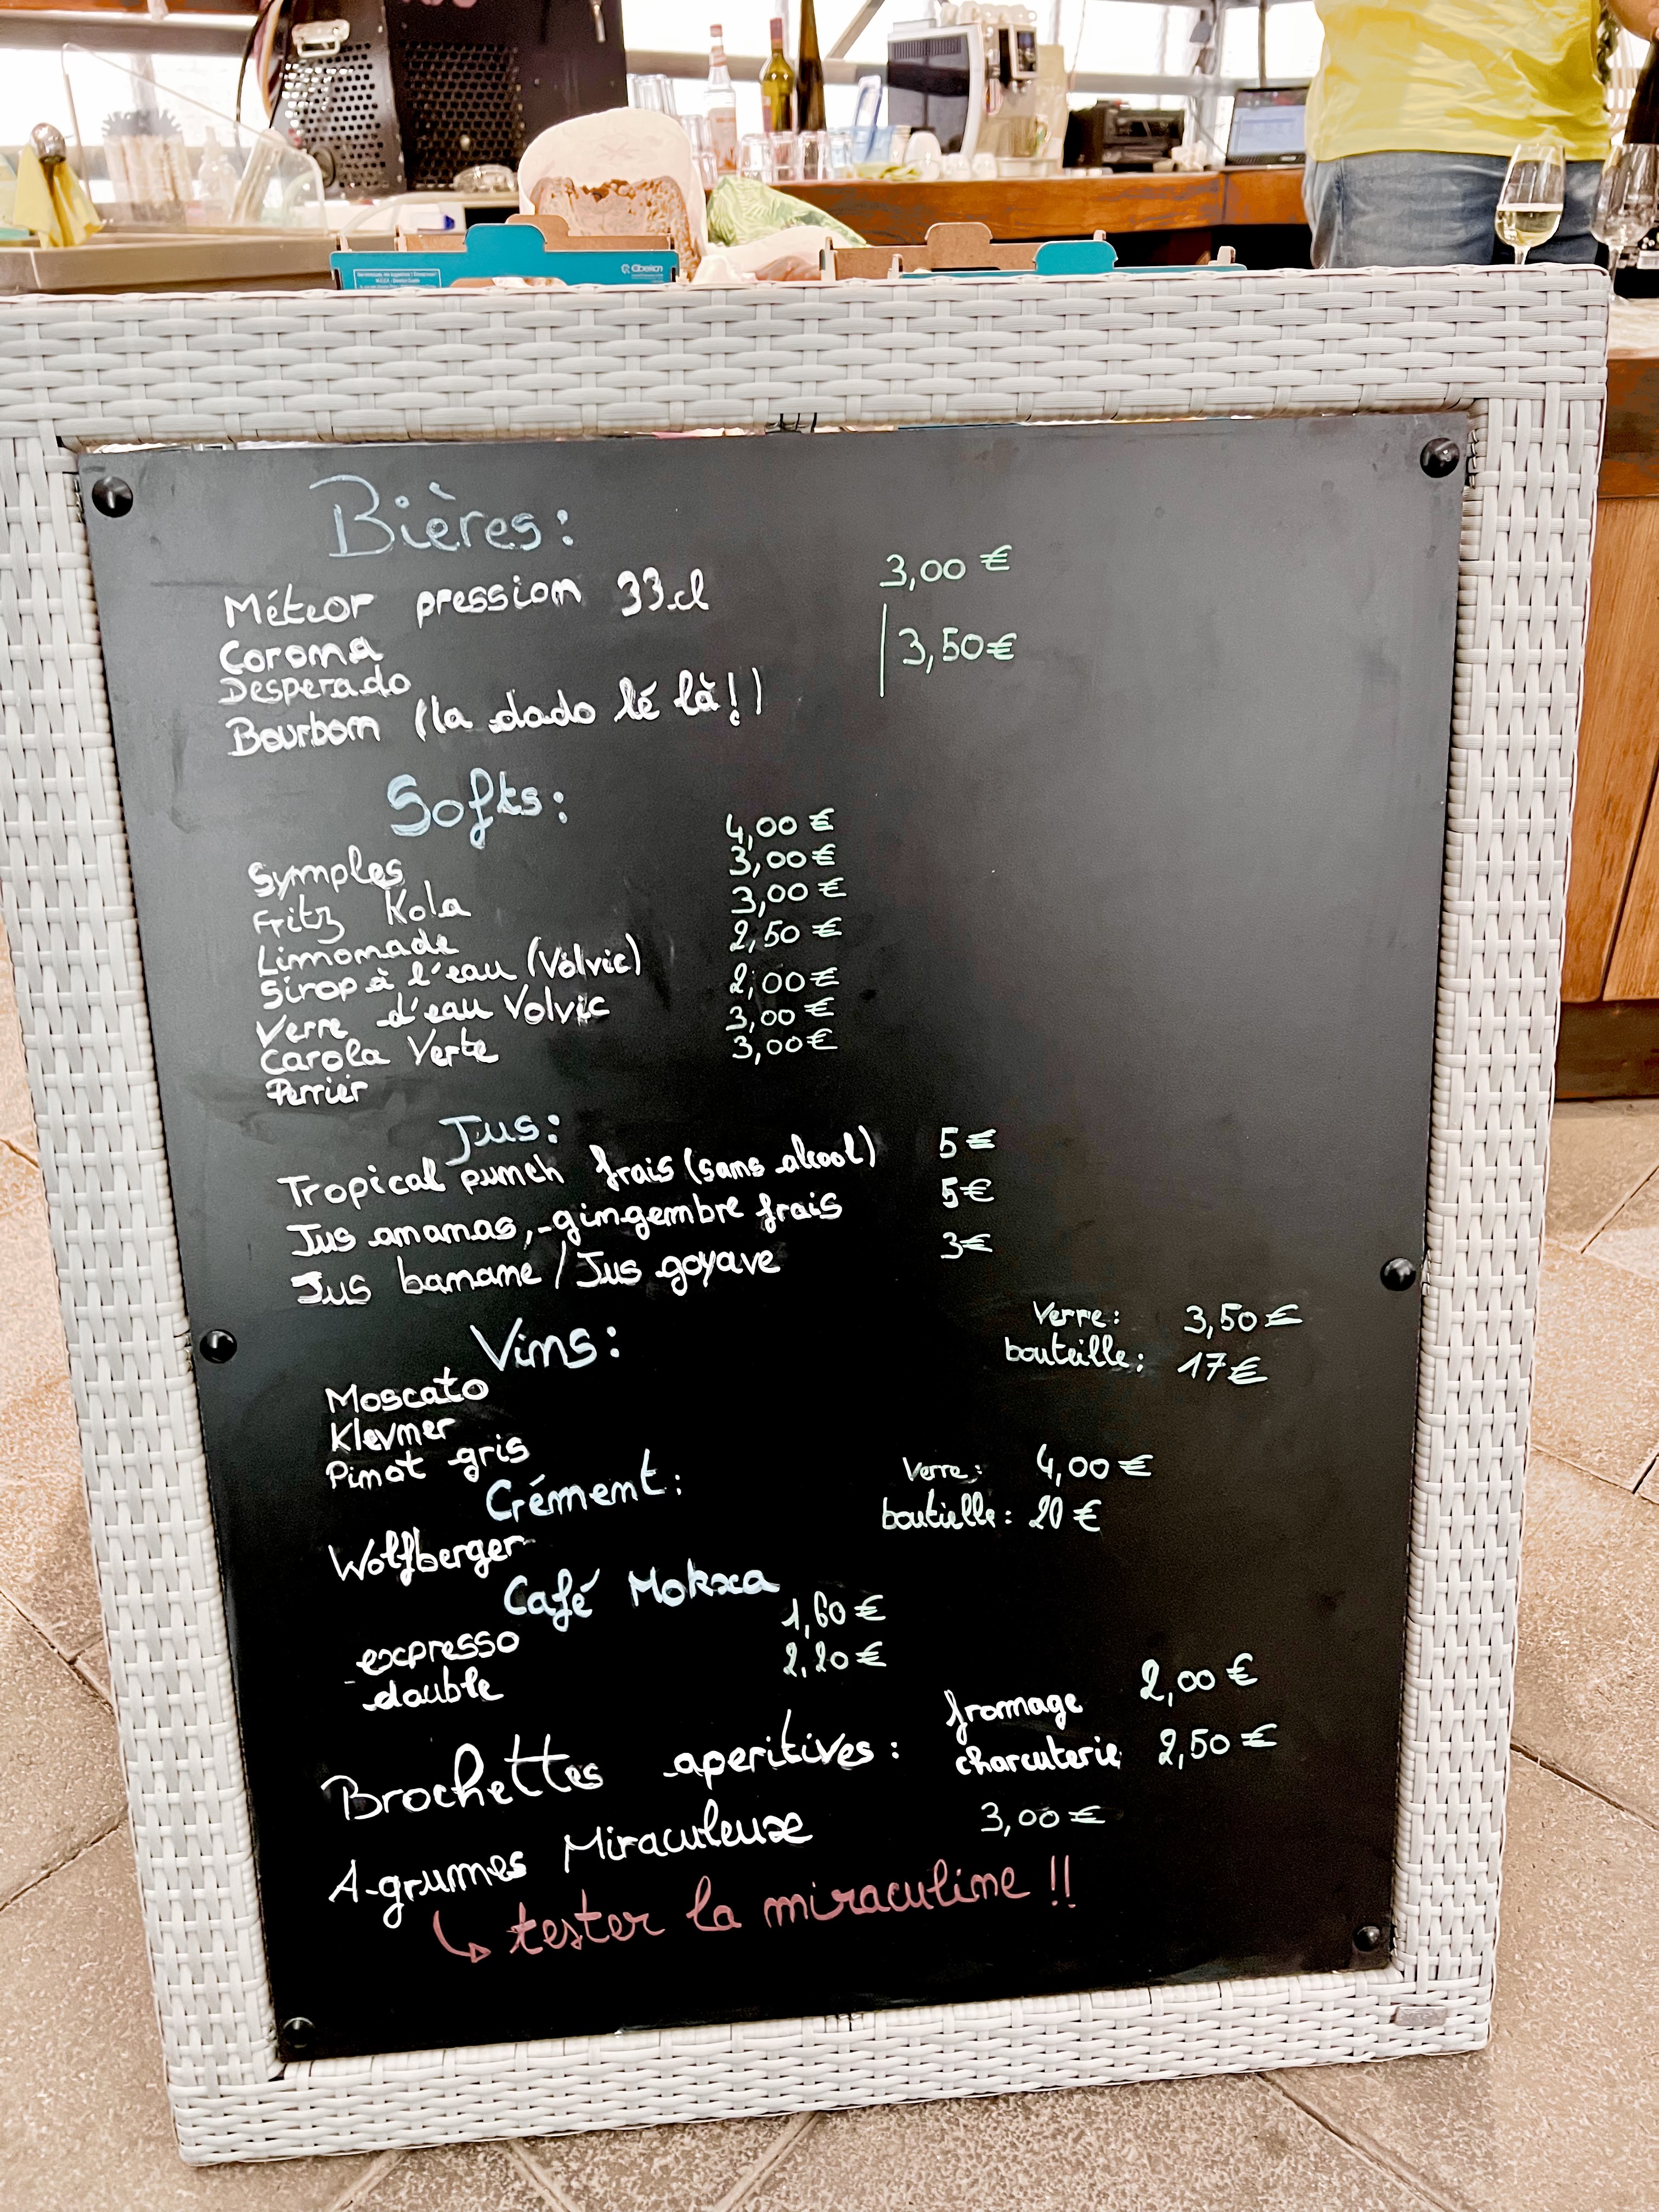 Bières:
Météor pression 33cl 3,00 €
Corona
Desperado 3,50€
Bourbon (la dodo lé là!)
Softs:
Symples 4,00 €
Fritz Kola 3,00 €
Limonade 3,00 €
Sirop à l'eau (Volvic) 2,50 €
Verre d'eau Volvic 2,00 €
Carola Verte 3,00 €
Perrier 3,00 €
Jus:
Tropical punch frais (sans alcool) 5 €
Jus ananas,-gingembre frais 5€
Jus banane / Jus goyave 3€
Vins: Verre: 3,50 €
bouteille: 17€
Moscato
Klevner
Pinot gris
Crément: Verre: 4,00 €
boutielle: 20 €
Wolfberger
Café Mokxa
expresso 1,60 €
double 2,20 €
Brochettes aperitives: fromage 2,00 €
charcuterie 2,50 €
Agrumes Miraculeuse 3,00 €
↳ tester la miraculine !!